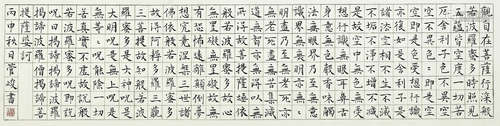 觀自在菩薩行深般
若波羅蜜多時照見
五蘊皆空度一切苦
厄舍利子色不異空
空不異色色即是空
空即是色受想行識
亦復如是舍利子是
諸法空相不生不滅
不垢不淨不增不減
是故空中無色無受
想行識無眼耳鼻舌
身意無色聲香味觸
法無眼界乃至無意
識界無無明亦無無
明盡乃至無老死亦
無老死盡無苦集滅
道無智亦無得以無
所得故菩提薩埵依
般若波羅蜜多故心
無罣礙無罣礙故無
有恐怖遠離顛倒夢
想究竟涅槃三世諸
佛依般若波羅蜜多
故得阿耨多羅三藐
三菩提故知般若波
羅蜜多是大神呪是
大明呪是無上呪是
無等等呪能除一切
苦真實不虛故說般
若波羅蜜多呪即說
呪曰揭諦揭諦波羅
揭諦波羅僧揭諦菩
提薩婆訶
丙申秋日管峻書